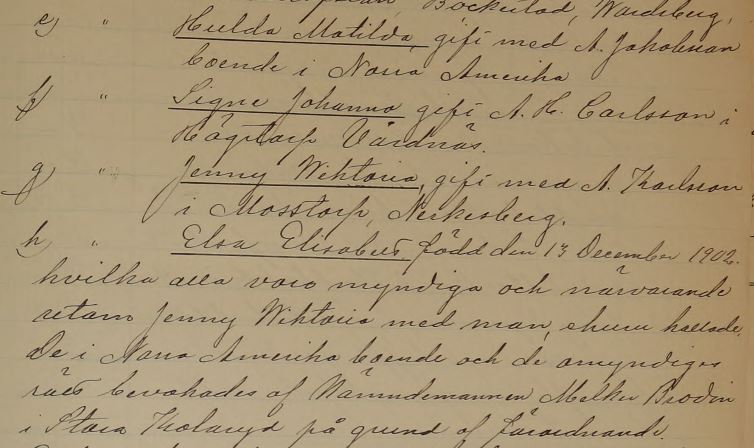 Bockestad, Wårdsberg,
e) " Hulda Matilda, gift med A. Jakobsson
boende i Norra Amerika
f) " Signe Johanna gift A. H. Carlsson i
Högstorp Vårdnäs.
g) " Jenny Wiktoria, gift med A. Karlsson
i Mosstorp, Nerkesberg.
h) " Elsa Elisabet, född den 13 December 1902.
hvilka alla voro myndiga och närvarande
utom Jenny Wiktoria med man, ehuru kallade.
De i Norra Amerika boende och de omyndiges
rätt bevakades af Nämndemannen Melker Brodin
i Stora Kolaryd på grund af förordnande.